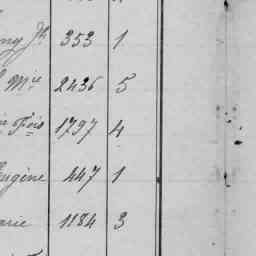 Jh 353 1
Mie 2436 5
Fois 1797 4
Eugène 447 1
arie 1184 3